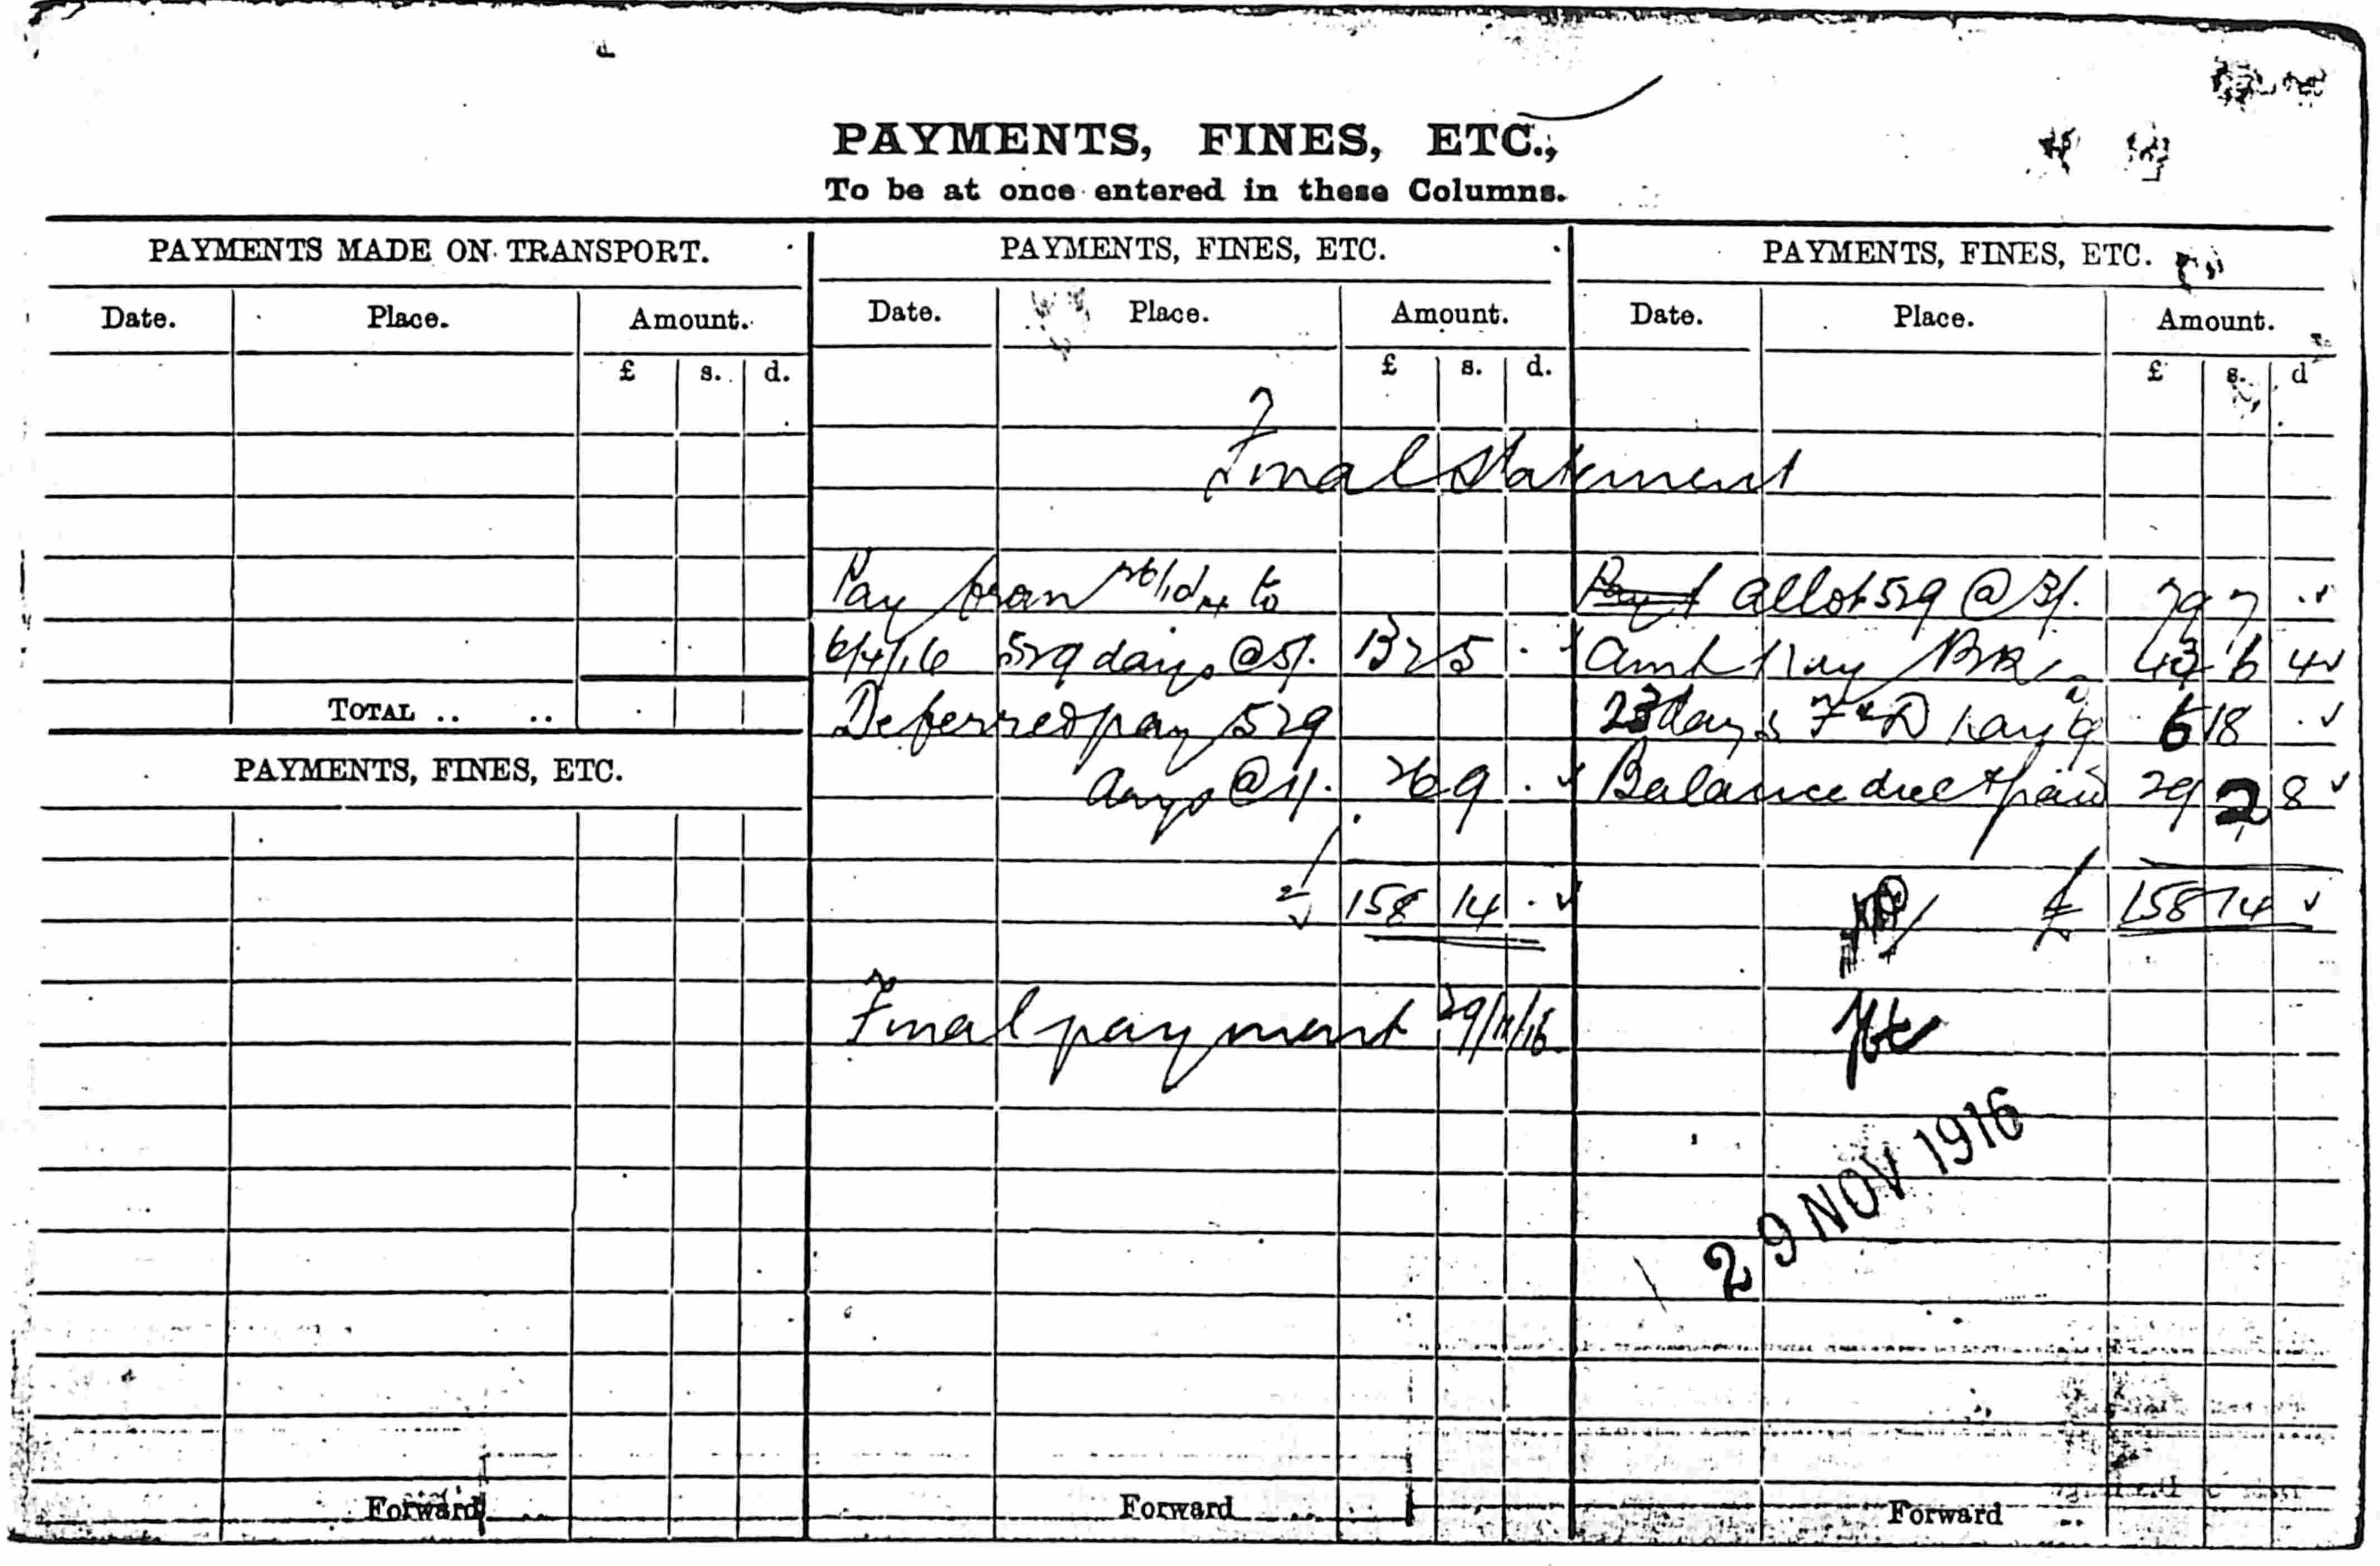 PAYMENTS, FINES, ETC.,
To be at once entered in these Columns.
PAYMENTS MADE ON TRANSPORT.
Date. Place. Amount.
£ s. d.
TOTAL .. ..
PAYMENTS, FINES, ETC.
Forward
PAYMENTS, FINES, ETC.
Date. Place. Amount.
£ s. d.
Final Statement
Pay from to
6/4/16 529 days @ 5/. 132 5 .
Deferred pay 529
days @ 1/. 26 9 .
£ 158 14 .
Final payment 29/11/16
Forward
PAYMENTS, FINES, ETC.
Date. Place. Amount.
£ s. d
Pay allot 529 @ 3/. 79 7 .
Amt Pay Bk 43 6 4
23 days F & D Pay 6 18 .
Balance due & paid 29 2 8
£ 158 14
29 NOV 1916
Forward ..